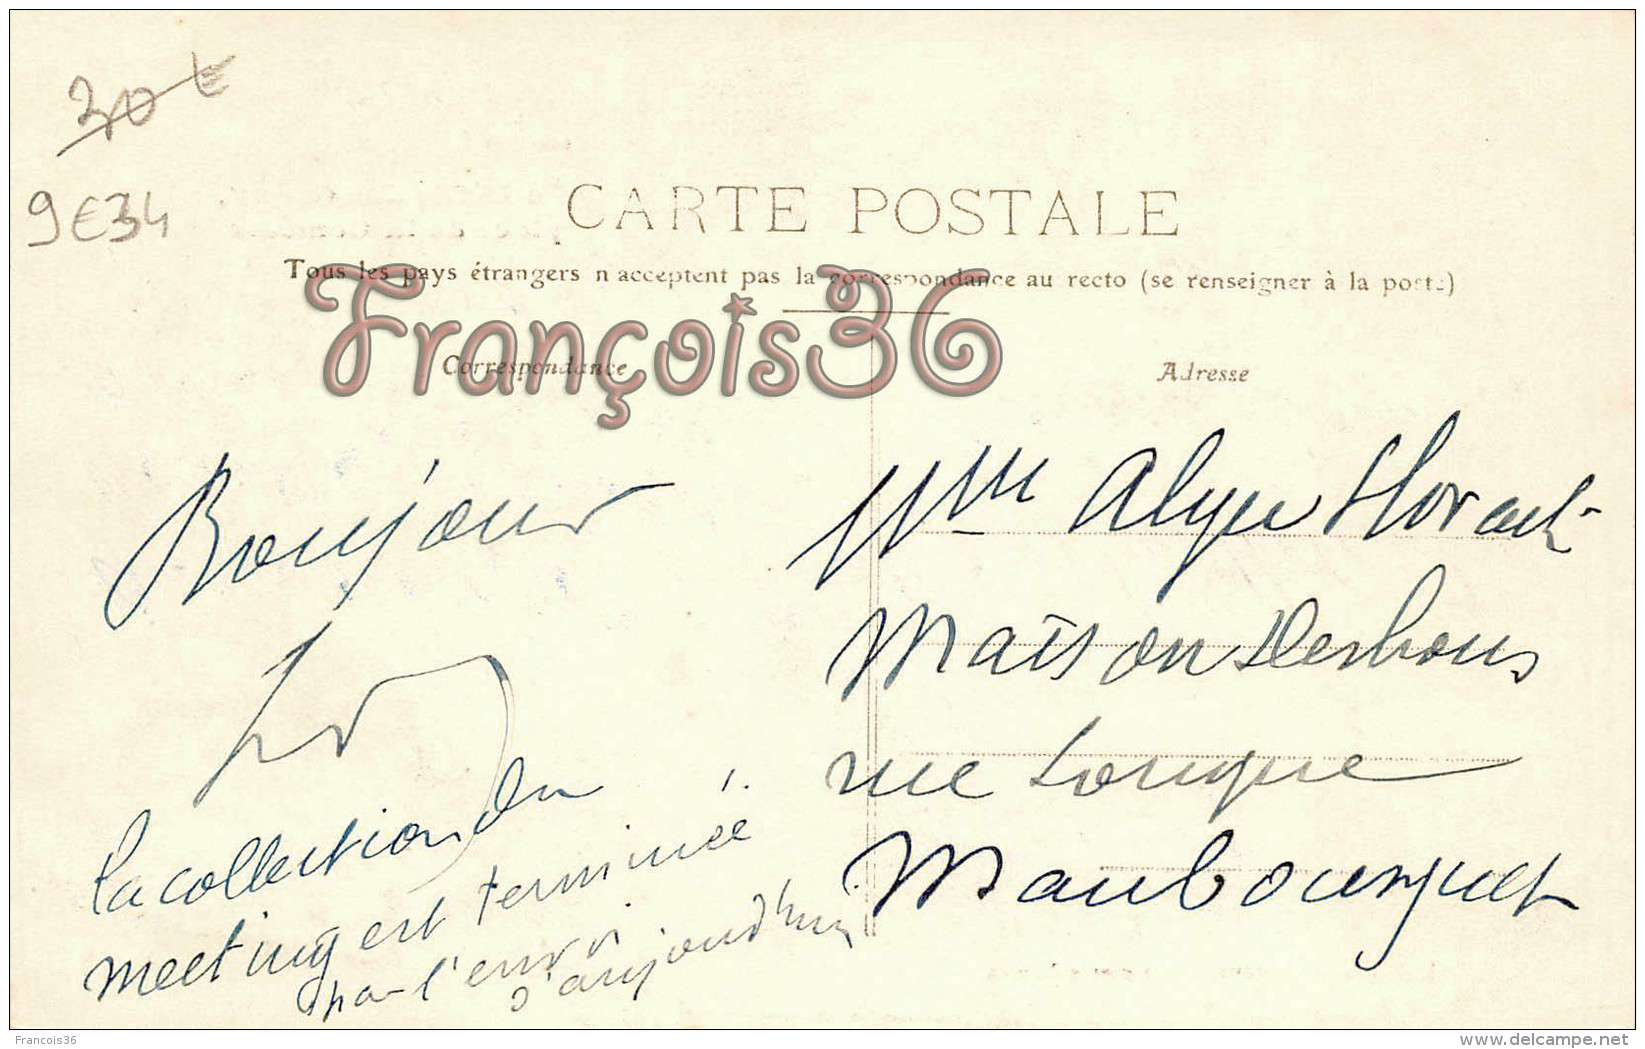 20 €
9E34
CARTE POSTALE
Tous les pays étrangers n'acceptent pas la correspondance au recto (se renseigner à la poste)
François36
Correspondance
Adresse
Bonjour
la collection du
meeting est terminée
par l'envoi
d'aujourd'hui
Mme
Maison
rue Longue
Maubourguet
Francois36
www.delcampe.net